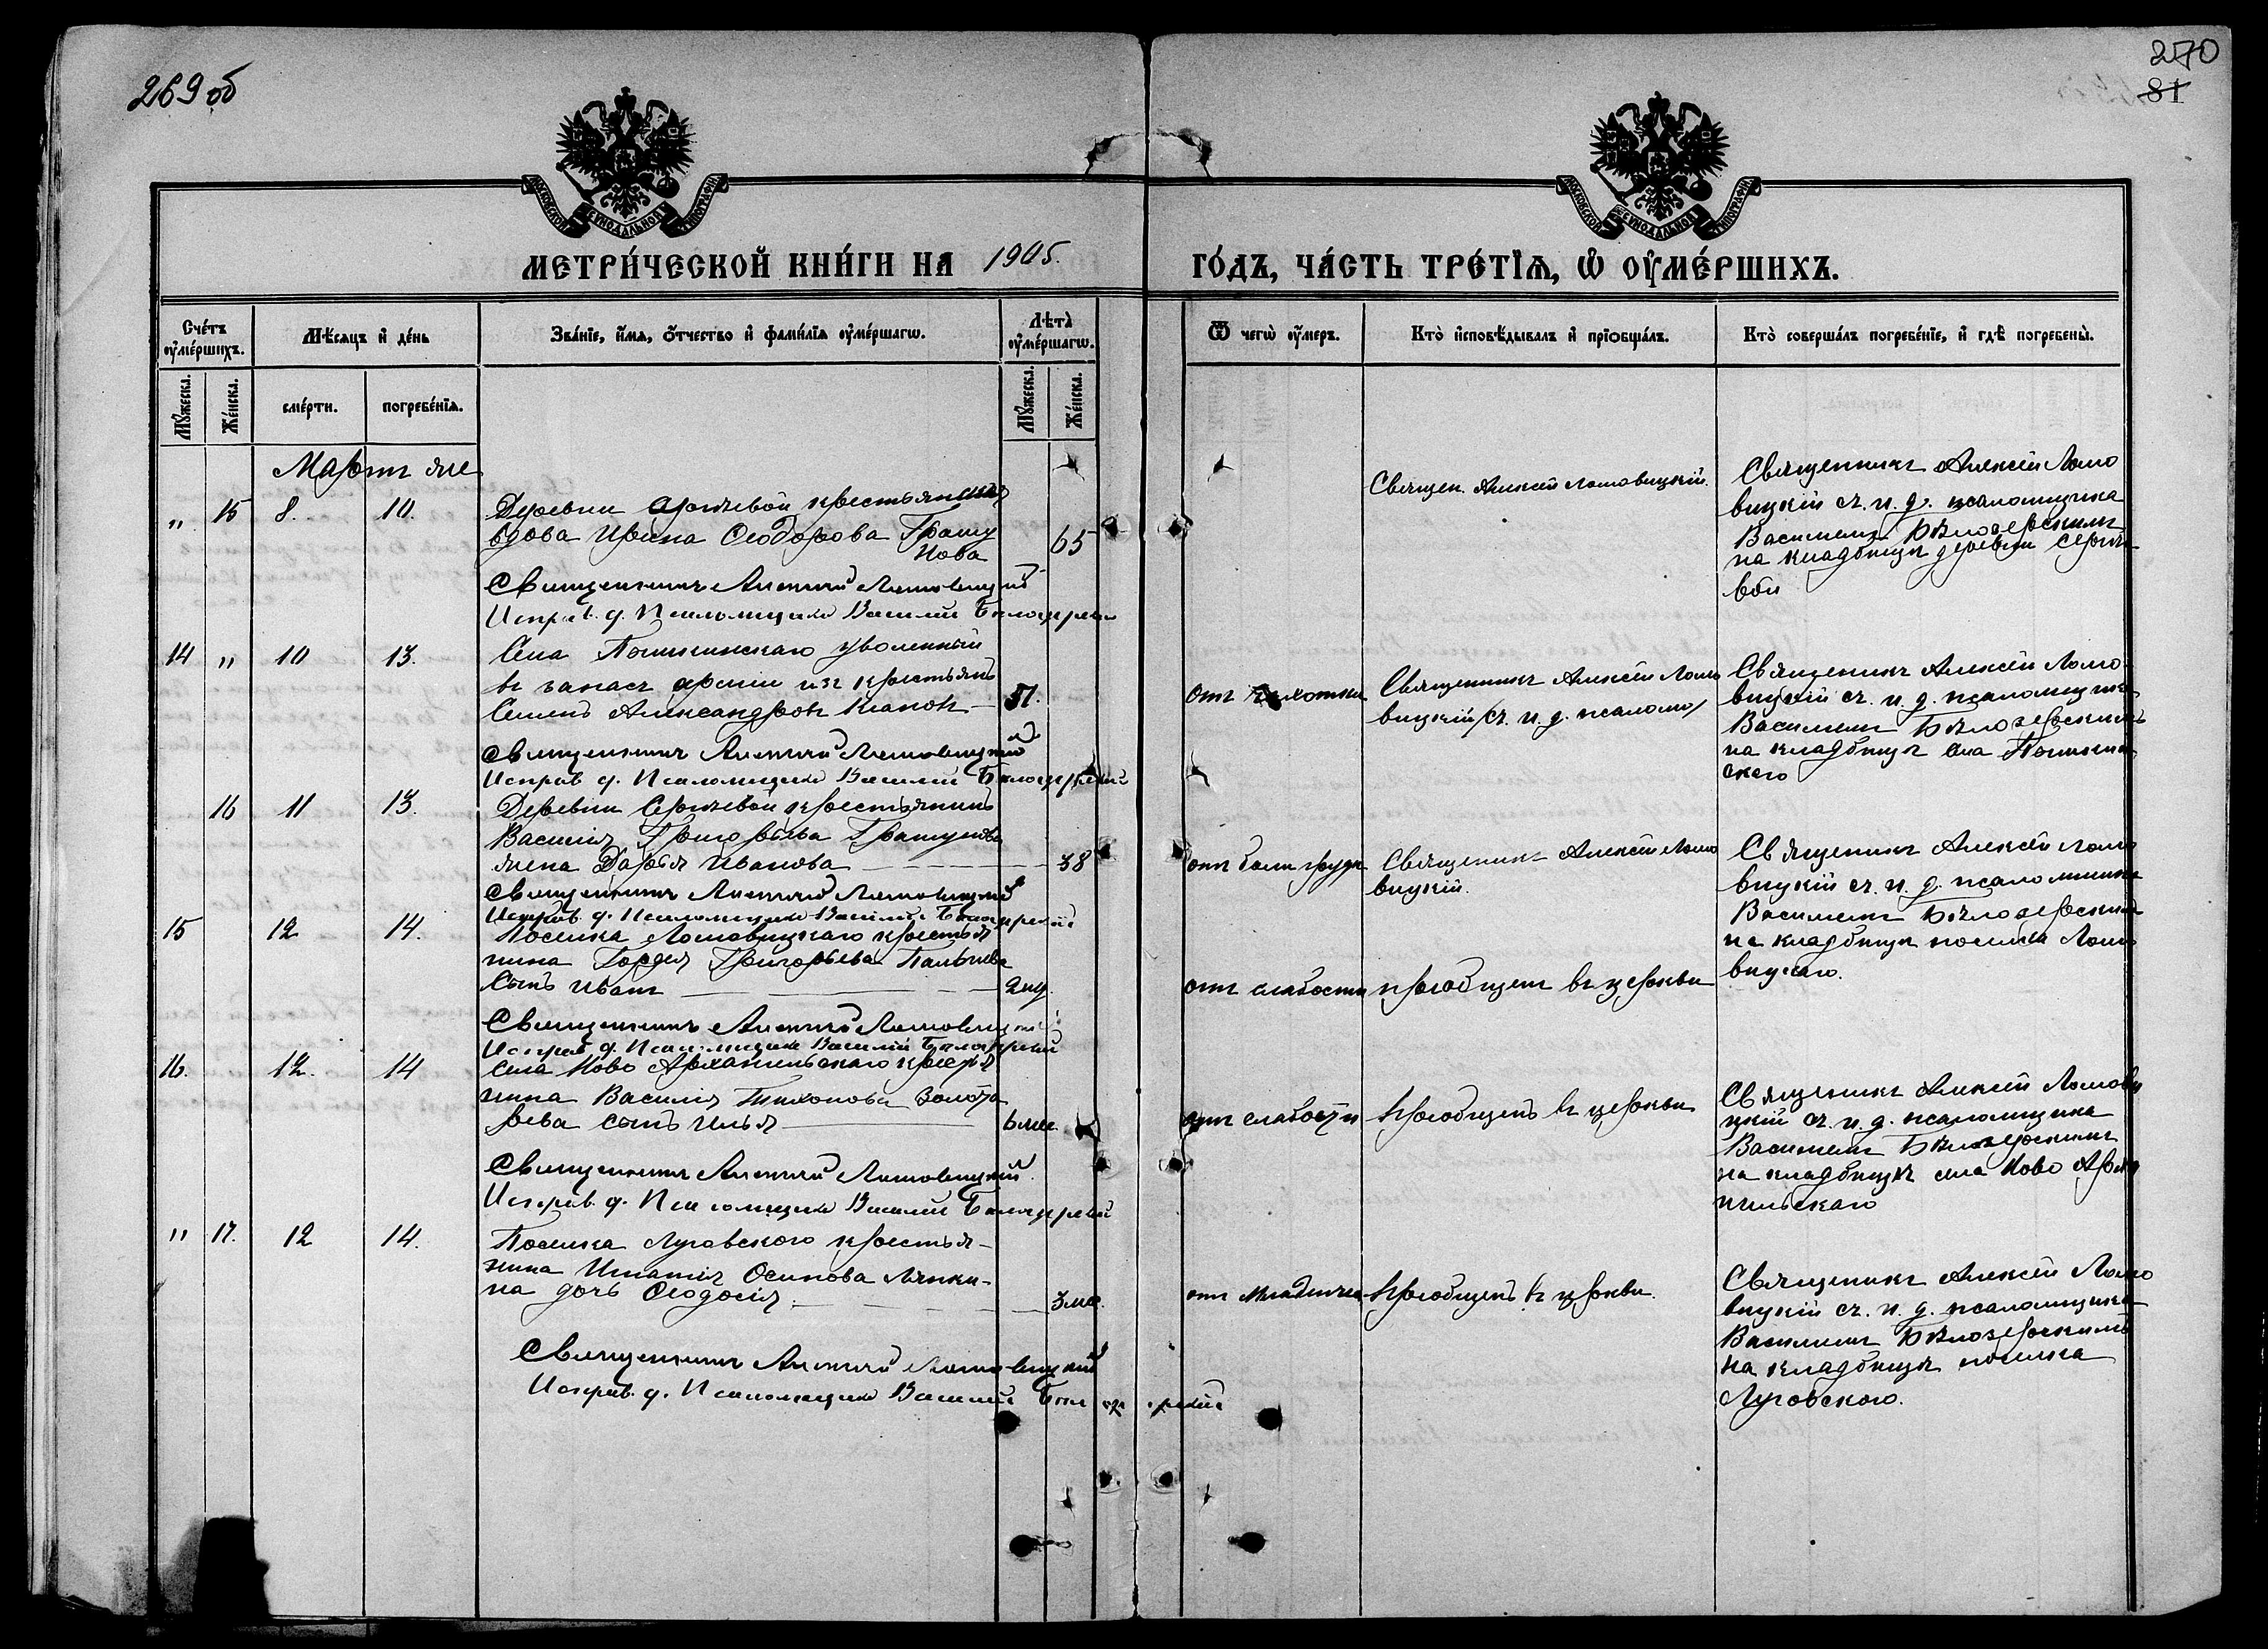 269 об
270
81
МОСКОВСКОЙ СѴНОДАЛЬНОЙ ТИПОГРАФІИ
МОСКОВСКОЙ СѴНОДАЛЬНОЙ ТИПОГРАФІИ
МЕТРИ́ЧЕСКОЙ КНИ́ГИ НА 1905.
ГО́ДЪ, ЧА́СТЬ ТРЕ́ТІѦ, Ѡ҆ ОУ҆МЕ́РШИХЪ.
Сче́тъ оу҆ме́ршихъ.
Мѣ́сяцъ и҆ де́нь
Зва́нїе, и҆́мѧ, ѻ҆́тчество и҆ фами́лїѧ оу҆ме́ршагѡ.
Лѣ́та̀ оу҆ме́ршагѡ.
Ѿ чегѡ̀ оу҆́меръ.
Кто̀ и҆сповѣ́дывалъ и҆ прїѻбща́лъ.
Кто̀ соверша́лъ погребе́нїе, и҆ гдѣ̀ погребены̀.
Мꙋ́жеска.
Же́нска.
сме́рти.
погребе́нїѧ.
Мꙋ́жеска.
Же́нска.
Мартъ
" 15 8. 10.
Деревни крестьянская
вдова Ирина Ѳеодорова
нова 65
Священникъ Алексій Ломовицкій
Исправ. д. Псаломщика Василій Бѣлозерскій
Священ. Алексій Ломовицкій.
Священникъ Алексій Ломо
вицкій съ и. д. псаломщика
Василіемъ Бѣлозерскимъ
на кладбищѣ деревни
вой
14 " 10 13.
Села уволенный
въ запасъ арміи изъ крестьянъ
Александровъ
Священникъ Алексій Ломовицкій
Исправ. д. Псаломщика Василій Бѣлозерскій
отъ чахотки
Священникъ Алексій Ломо
вицкій /съ и. д. псалом/
Священникъ Алексій Ломо-
вицкій съ и. д. псаломщика
Василіемъ Бѣлозерскимъ
на кладбищѣ села
скаго
16 11 13.
Деревни крестьянина
Василія Григорьева
жена Дарья Иванова 38
Священникъ Алексій Ломовицкій
Исправ. д. Псаломщика Василій Бѣлозерскій
отъ боли груди
Священникъ Алексій Ломо
вицкій.
Священникъ Алексій Ломо
вицкій съ и. д. псаломщика
Василіемъ Бѣлозерскимъ
на кладбищѣ поселка Ломо
вицкаго.
15 12 14.
Поселка Ломовицкаго крестья
нина Гордея Григорьева
сынъ Иванъ 2 нед.
Священникъ Алексій Ломовицкій
Исправ. д. Псаломщика Василій Бѣлозерскій
отъ слабости
пріобщенъ въ церкви
16. 12. 14
Села Ново Архангельскаго крестья
нина Василія Тихонова Золота
рева сынъ Илья 6 мес.
Священникъ Алексій Ломовицкій
Исправ. д. Псаломщика Василій Бѣлозерскій
отъ слабости
пріобщенъ въ церкви
Священникъ Алексій Ломови
цкій съ и. д. псаломщика
Василіемъ Бѣлозерскимъ
на кладбищѣ села Ново Арха
нгельскаго
" 17. 12 14.
Поселка Луговского крестья-
нина Игнатія Осипова
на дочь Ѳеодосія 3 мес.
Священникъ Алексій Ломовицкій
Исправ. д. Псаломщика Василій Бѣлозерскій
пріобщенъ въ церкви.
Священникъ Алексій Ломо
вицкій съ и. д. псаломщика
Василіемъ Бѣлозерскимъ
на кладбищѣ поселка
Луговского.